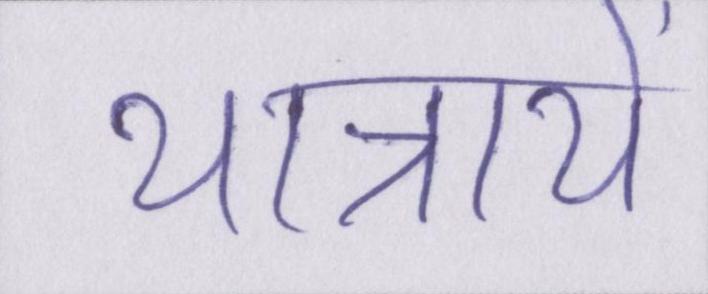 यात्रायें